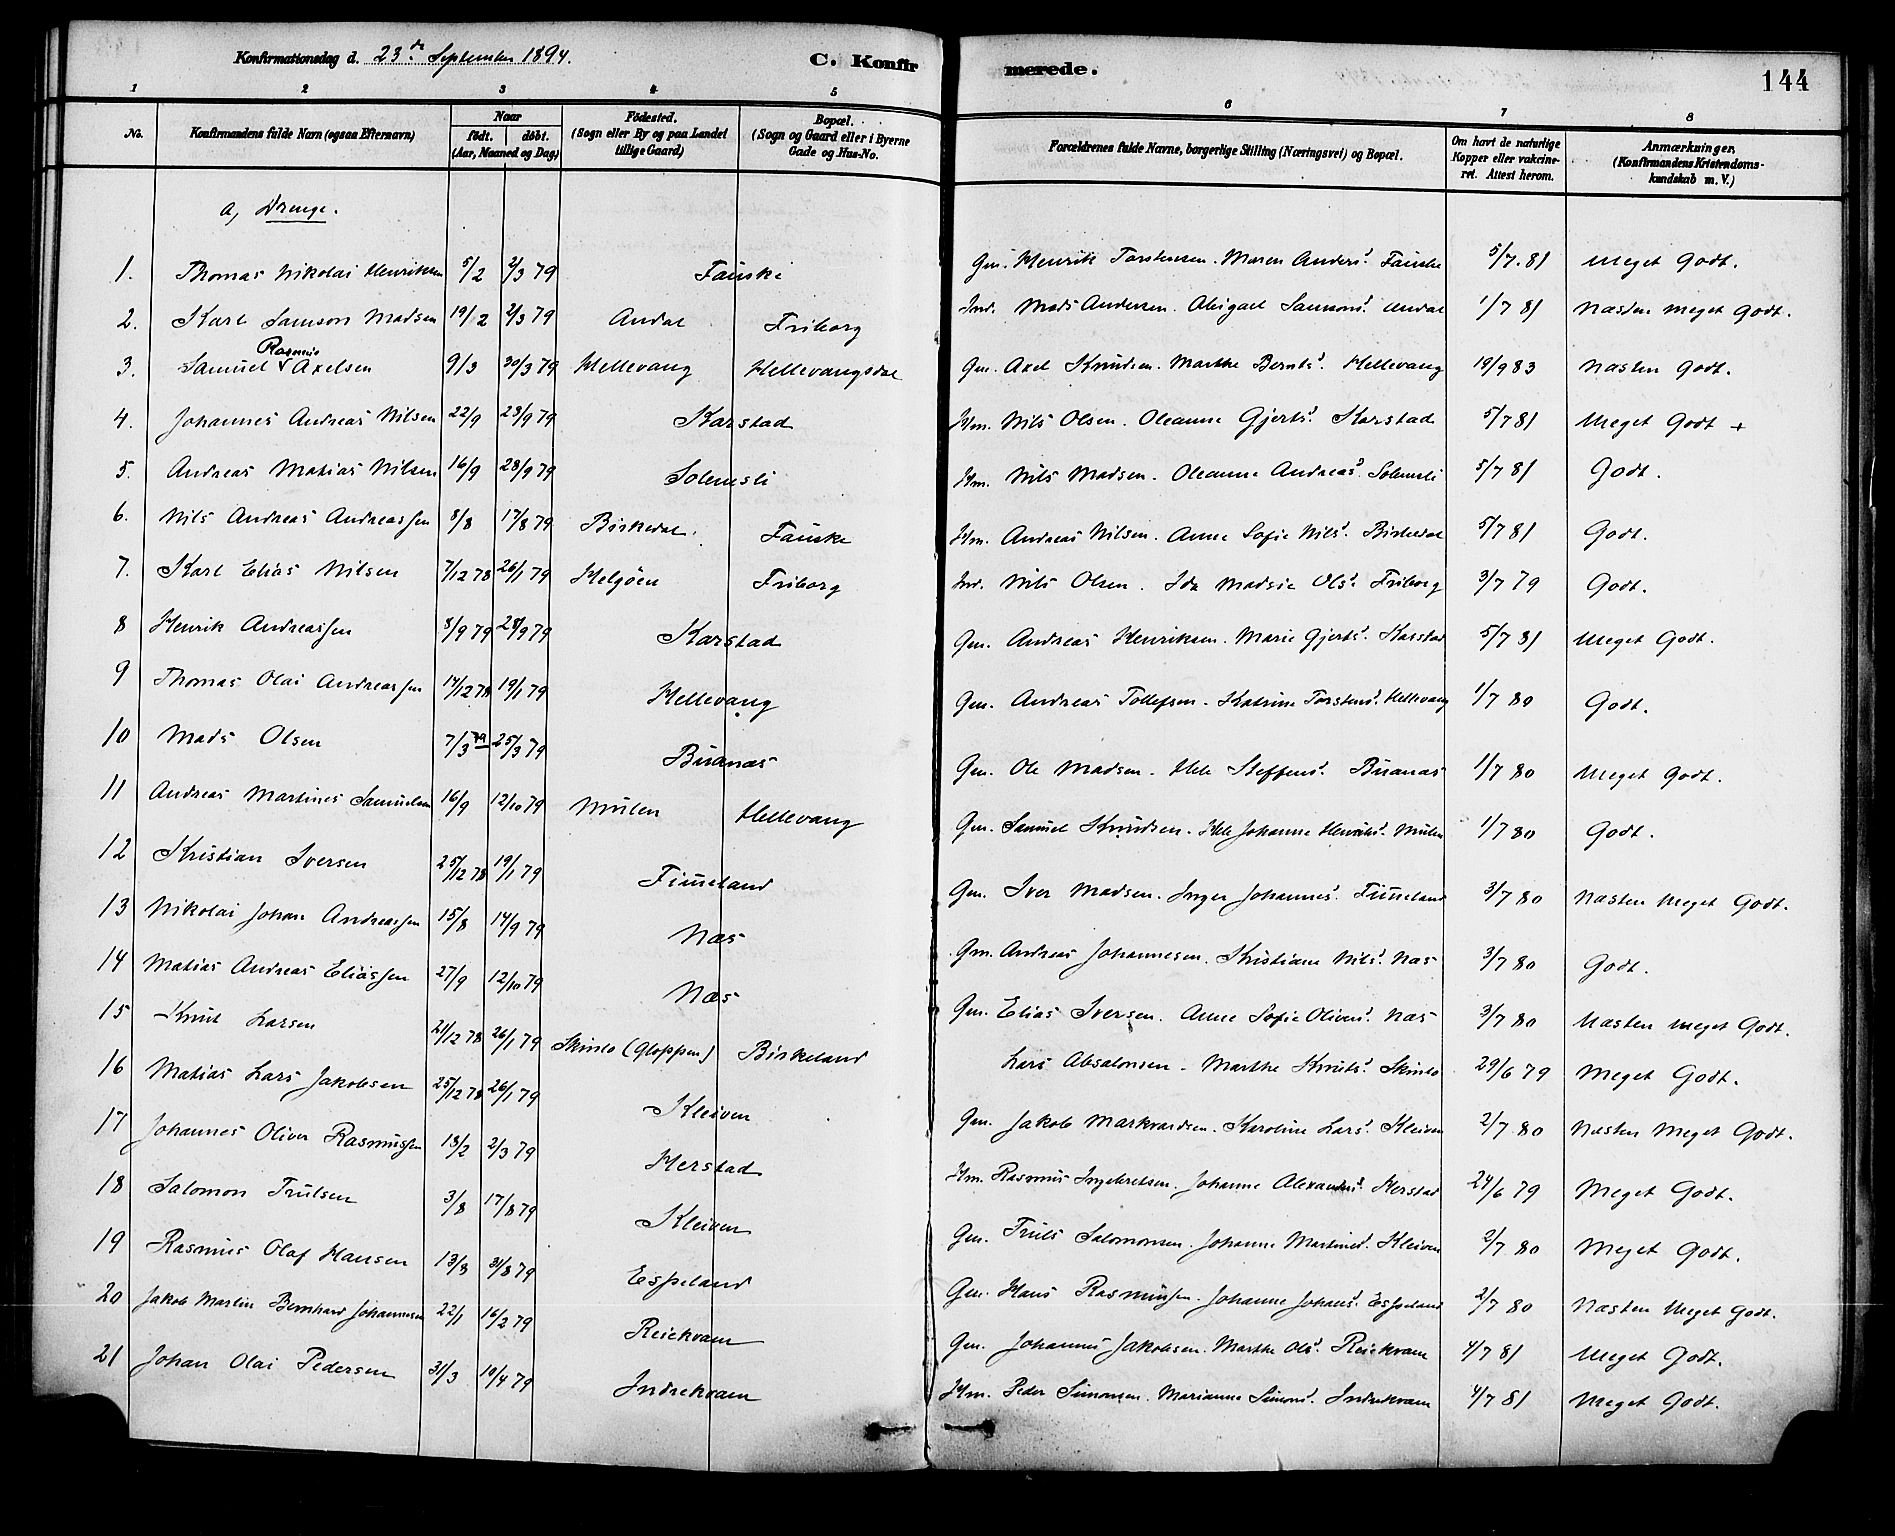 Konfirmationsdag d. 23de September 1894. C. Konfir merede. 144
1 2 3 4 5 6 7 8
No. Konfirmandens fulde Navn (ogsaa Efternavn) Naar födt. döbt. (Aar, Maaned og Dag) Födested. (Sogn eller By og paa Landet tillige Gaard) Bopæl. (Sogn og Gaard eller i Byerne Gade og Hus-No. Forældrenes fulde Navne, borgerlige Stilling (Næringsvei) og Bopæl. Om havt de naturlige Kopper eller vakcineret. Attest herom. Anmærkninger, (Konfirmandens Kristendomskundskab m. V.)
a, Drenge.
1. Thomas Nikolai Henriksen 5/2 2/3 79 Fauske Gm. Henrik Torstensen. Maren Anders'. Fauske 5/7.81 Meget Godt.
2. Karl Samson Madsen 19/2 2/3 79 Andal Friborg Ind. Mads Andersen. Abigael Samsons'. Andal 1/7 81 Næsten meget Godt.
3. Samuel Rasmus Axelsen 9/3 30/3 79 Hellevang Hellevangsdal Gm. Axel Knudsen. Marthe Bernts'. Hellevang 19/9 83 Næsten Godt.
4. Johannes Andreas Nilsen 22/9 28/9 79 Karstad Hm. Nils Olsen. Oleanne Gjerts'. Karstad 5/7 81 Meget Godt +
5. Andreas Matias Nilsen 16/9 28/9 79 Solemsli Hm. Nils Madsen. Oleanne Andreas'. Solemsli 5/7 81 Godt.
6. Nils Andreas Andreassen 8/8 17/8 79 Birkedal. Fauske Hm. Andreas Nilsen. Anne Sofie Nils'. Birkedal 5/7 81 Godt.
7. Karl Elias Nilsen 7/12 78 26/1 79 Helgöen Friborg Ind. Nils Olsen. Ida Madsie Ols'. Friborg 3/7 79 Godt.
8 Henrik Andreassen 8/9 79 28/9 79 Karstad Gm. Andreas Henriksen. Marie Gjerts'. Karstad 5/7 81 Meget Godt.
9 Thomas Olai Andreassen 14/12 78 19/1 79 Hellevang Gm. Andreas Tollefsen. Katrine Torstens'. Hellevang 1/7 80 Godt.
10 Mads Olsen 7/3 79 25/3 79 Buanæs Gm. Ole Madsen. Steffens'. Buanæs 1/7 80 Meget Godt.
11 Andreas Martines Samuelsen 16/9 12/10 79 Mulen Hellevang Gm. Samuel Knudsen. Johanne Henriks'. Mulen 1/7 80 Godt.
12 Kristian Iversen 25/12 78 19/1 79 Fimeland Gm. Iver Madsen. Inger Johannes'. Fimeland 3/7 80 Næsten Meget Godt.
13 Nikolai Johan Andreassen 15/8 14/9 79 Næs Gm. Andreas Johannesen. Kristiane Nils'. Næs 3/7 80 Godt.
14 Matias Andreas Eliassen 27/9 12/10 79 Næs Gm. Elias Iversen. Anne Sofie Olivers'. Næs 3/7 80 Næsten meget Godt.
15 Knut Larsen 21/12 78 26/1 79 Skinlo (Gloppen) Birkeland Lars Absalonsen. Marthe Knuts'. Skinlo 29/6 79 Meget Godt.
16 Matias Lars Jakobsen 25/12 78 26/1 79 Kleiven Gm. Jakob Markvardsen. Karoline Lars'. Kleiven 2/7 80 Næsten Meget Godt.
17 Johannes Oliver Rasmussen 18/2 2/3 79 Herstad Hm. Rasmus Ingebretsen. Johanne Alexanders'. Herstad 24/6 79 Meget Godt.
18 Salomon Trulsen 3/8 17/8 79 Kleiven Gm. Truls Salomonsen. Johanne Martines'. Kleiven 2/7 80 Meget Godt.
19 Rasmus Olaf Hansen 13/8 31/8 79 Espeland Gm. Hans Rasmussen. Johanne Johans'. Espeland 2/7 80 Næsten Meget Godt.
20 Jakob Martin Bernhard Johannesen 22/1 16/2 79 Reiekvam Gm. Johannes Jakobsen. Marthe Ols'. Reiekvam 4/7 81 Meget Godt.
21 Johan Olai Pedersen 31/3 10/4 79 Indrekvam Hm. Peder Simonsen. Marianne Simons'. Indrekvam 4/7 81 Meget Godt.